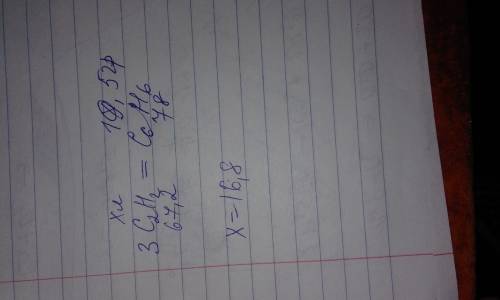 хл 19,5г
3C₂H₂ = C₆H₆
67,2 78
x = 16,8